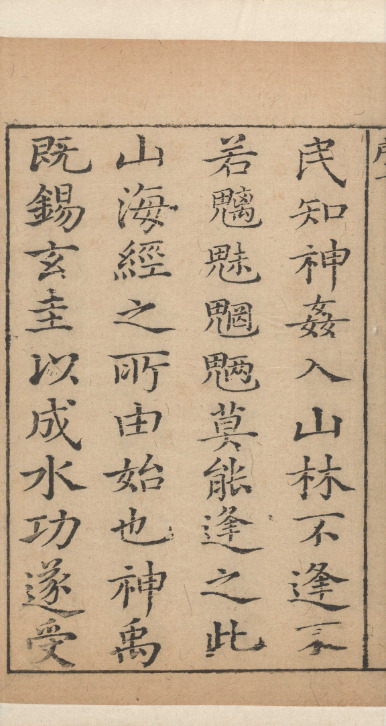 民知神姦入山林不逢不
若魑魅魍魎莫能逢之此
山海經之所由始也神禹
既錫玄圭以成水功遂受